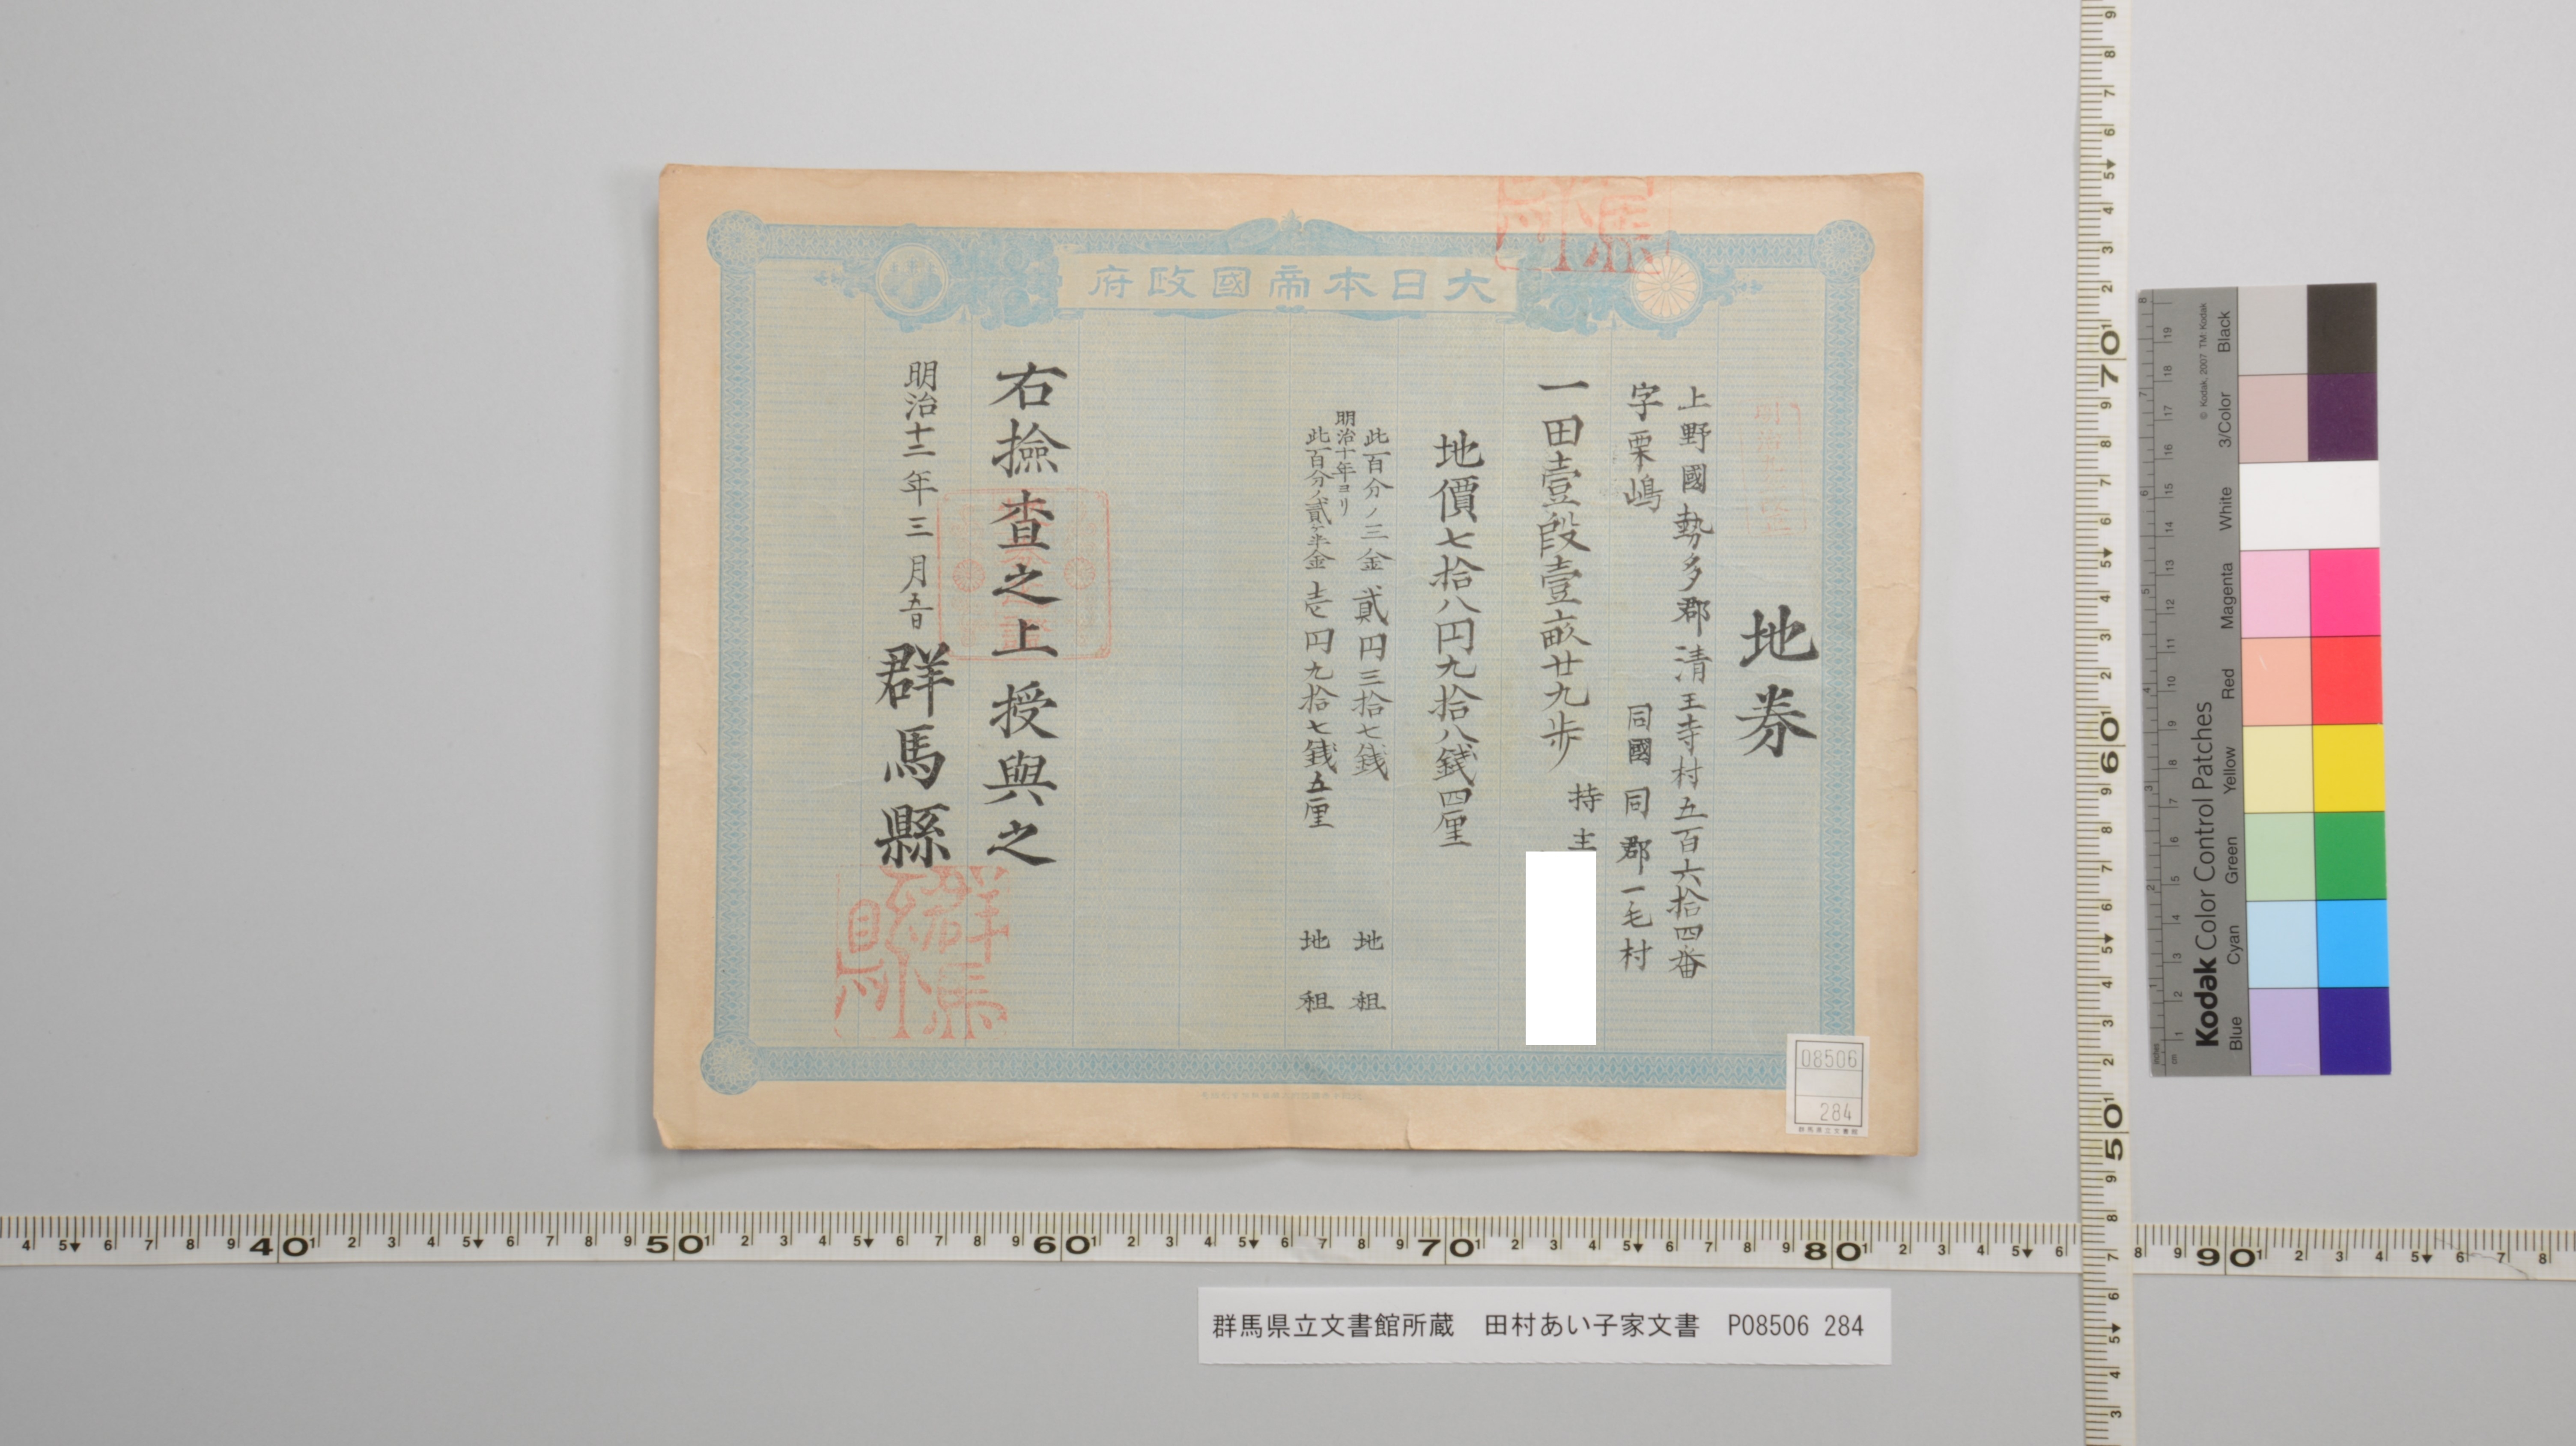 大日本帝國政府
地券
上野國勢多郡清王寺村五百六拾四番
字栗嶋
同國同郡一毛村
一田壹段壹畝廿九歩
持主
地價七拾八円九拾八銭四厘
此百分ノ三金貳円三拾七銭 地租
明治十年ヨリ
此百分ノ貳ヶ半金壱円九拾七銭五厘 地租
右撿査之上授與之
明治十二年三月五日
群馬縣
08506
284
群馬県立文書館
群馬県立文書館所蔵 田村あい子家文書 P08506 284
Kodak Color Control Patches
© Kodak, 2007 TM: Kodak
Blue Cyan Green Yellow Red Magenta White 3/Color Black